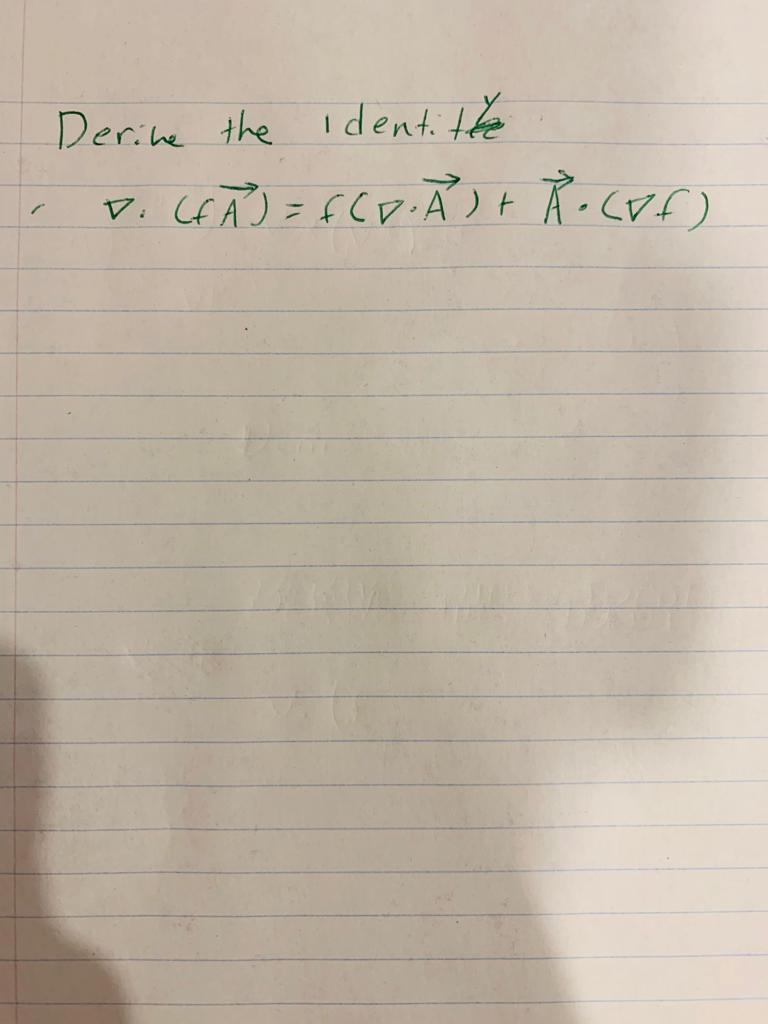 Derive the identity
∇. (fA⃗) = f(∇·A⃗) + A⃗·(∇f)